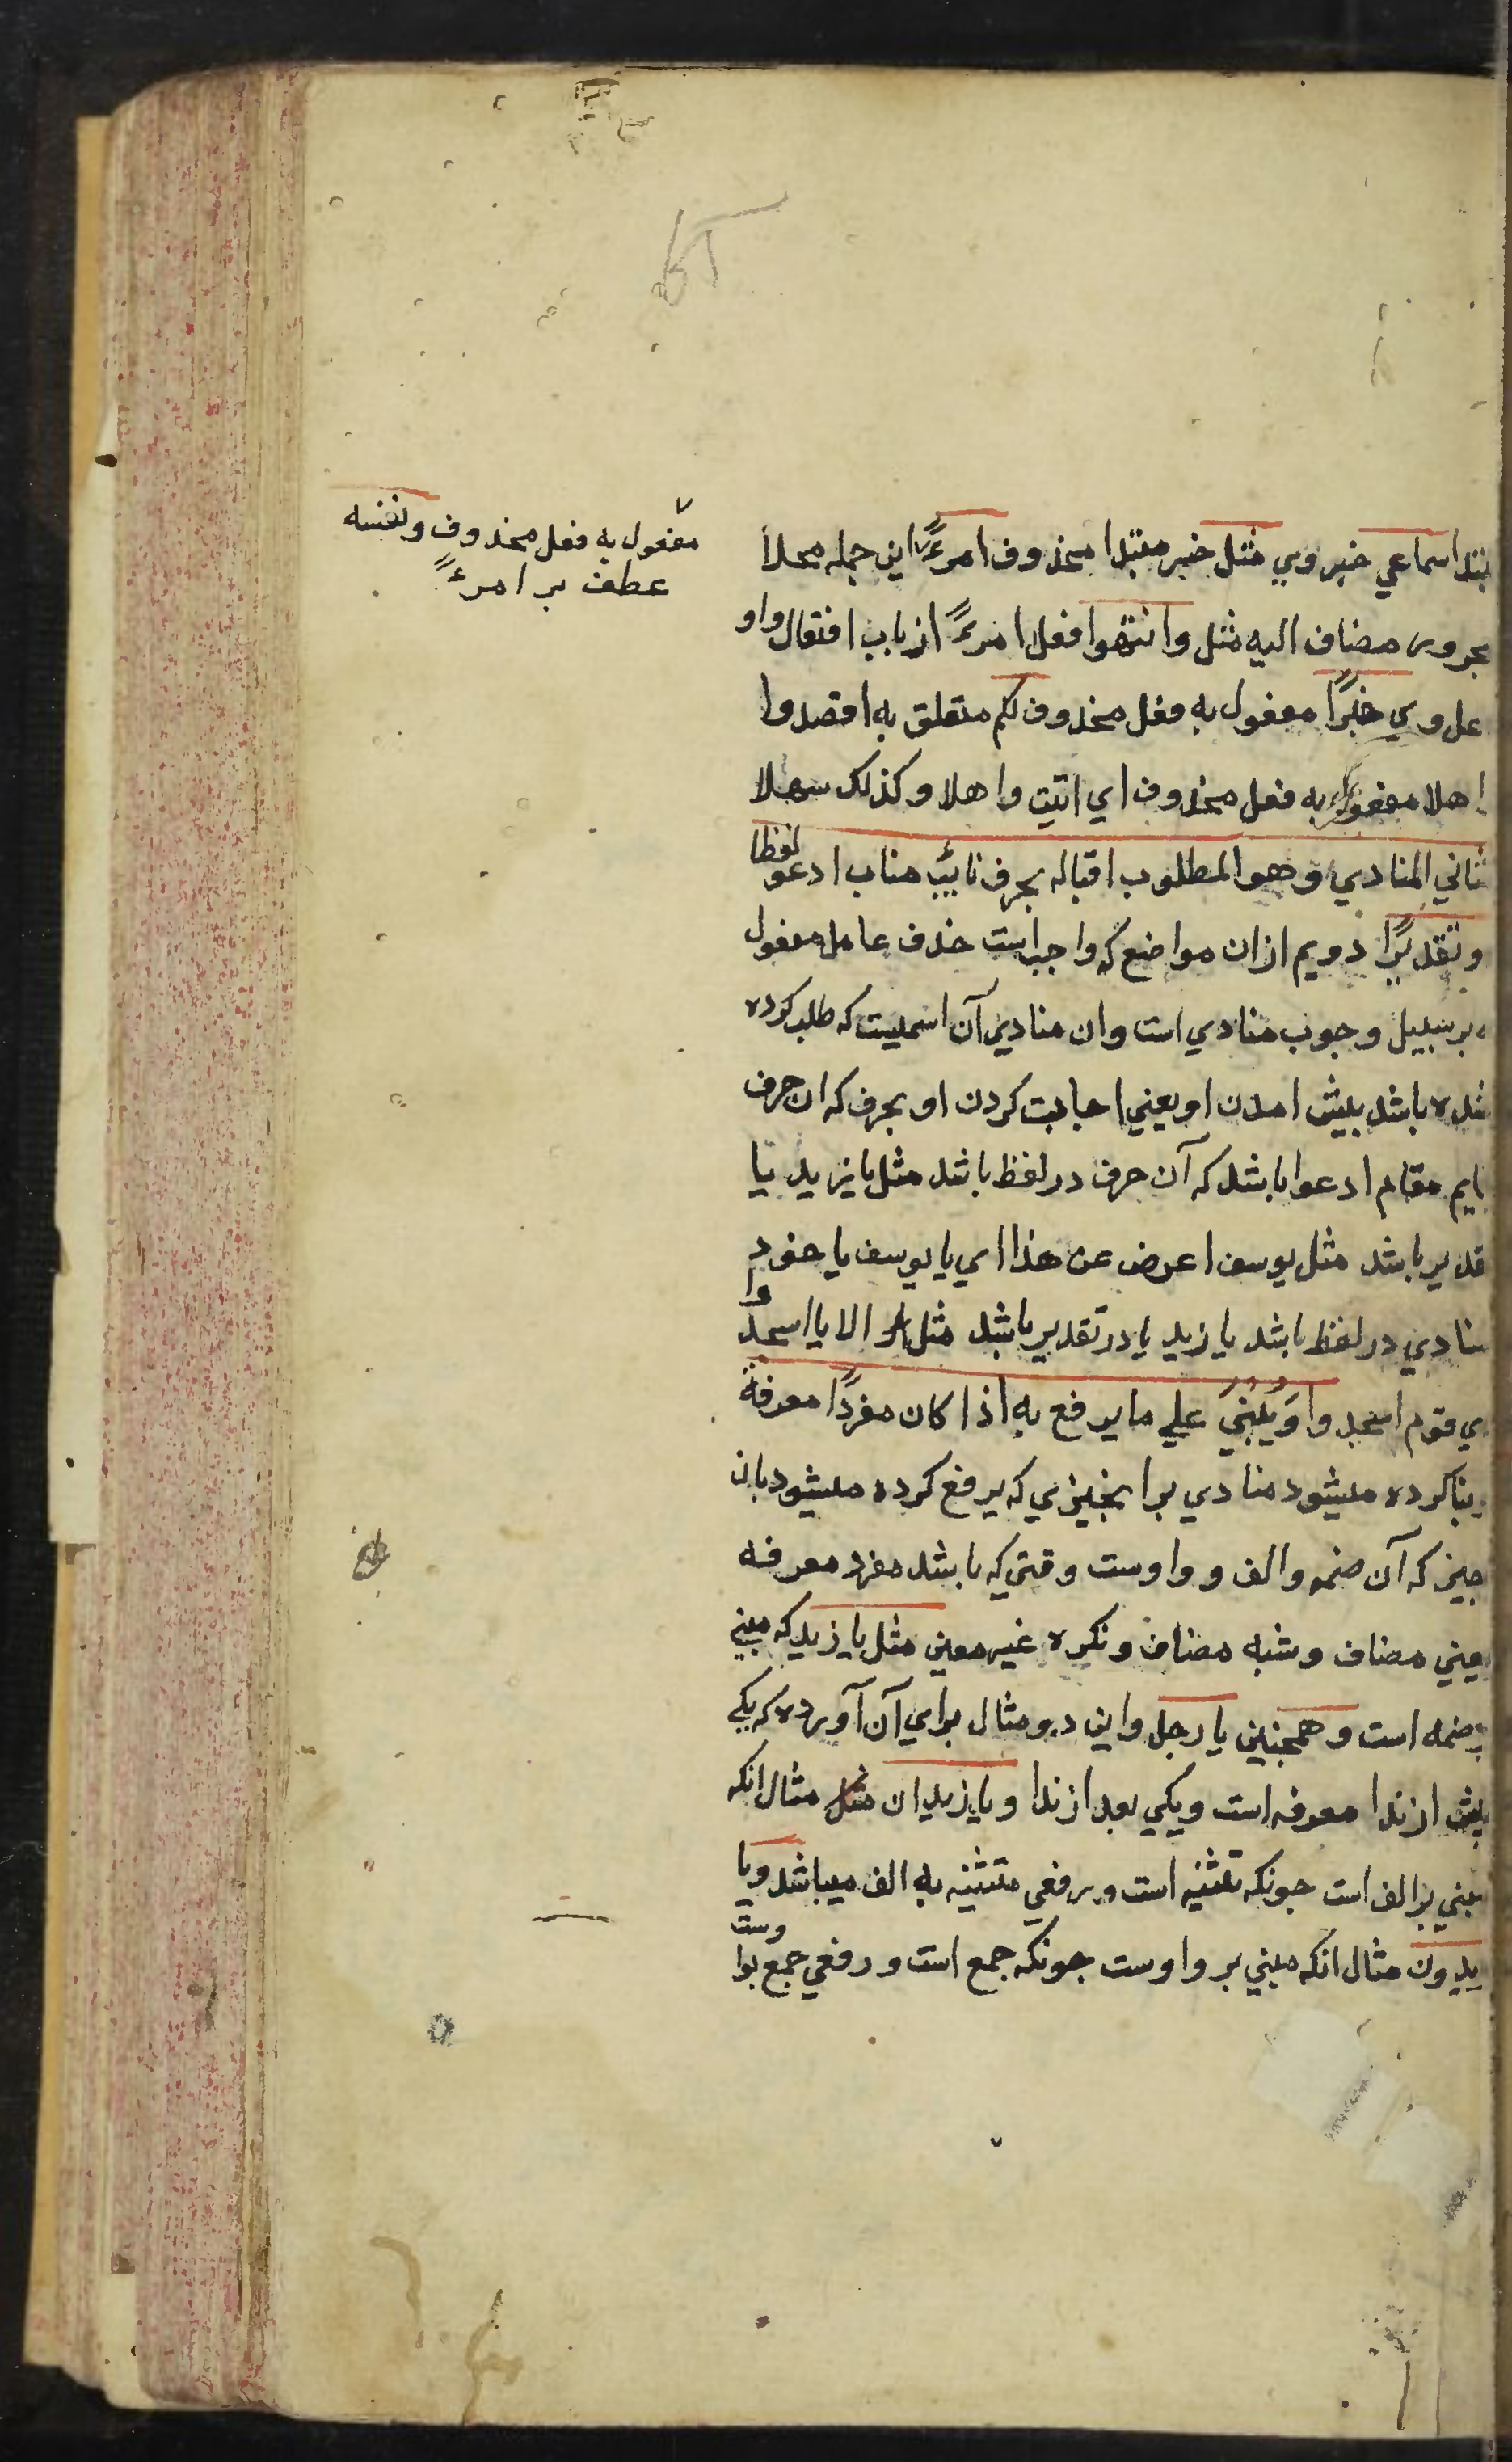 بتدا سماعي خبر وي مثل خبر مبتدا محذوف امرءً اين جمله محلا
مفعول به فعل محذوف ونفسه
عطف بر امرءً
مجرور مضاف اليه مثل وانتهوا فعل امرءً از باب افتعال واو
عل وي خيرًا مفعول به فعل محذوف لكم متعلق به اقصدوا
اهلا مفعول به فعل محذوف اي اتيت واهلا وكذلك سهلا
ثاني المنادي وهو المطلوب اقباله بحرف نائب مناب ادعو لفظا
وتقديرًا دويم ازان مواضع كه واجب است حذف عامل مفعول
ه بر سبيل وجوب منادي است وان منادي آن اسميست كه طلب كرده
شده باشد بپيش امدن او يعني اجابت كردن او بحرف كه ان حرف
ايم مقام ادعوا باشد كه آن حرف در لفظ باشد مثل يا زيد يا
قدير باشد مثل يوسف اعرض عن هذا اي يا يوسف يا خود
منادي در لفظ باشد يا زيد يا در تقدير باشد مثل الا يا اسجدوا
ي قوم اسجدوا وَيُبْنَيَ علي ما يرفع به اذا كان مفردًا معرفة
بنا كرده ميشود منادي برا بخيزي كه يرفع كرده ميشود بان
چيز كه آن ضمه والف وواوست وقتي كه باشد مفرد معرفه
يعني مضاف وشبه مضاف ونكره غير معين مثل يا زيد كه مبني
بر ضمه است وهمچنين يا رجل واين دو مثال براي آن آورده كه يكي
پيش از ندا معرفه است ويكي بعد از ندا ويا زيدان مثل مثال انكه
مبني بر الف است چونكه تثنيه است ورفعي متثنيه به الف ميباشد ويا
يدون مثال انكه مبني بر واوست چونكه جمع است ورفعي جمع بواوست